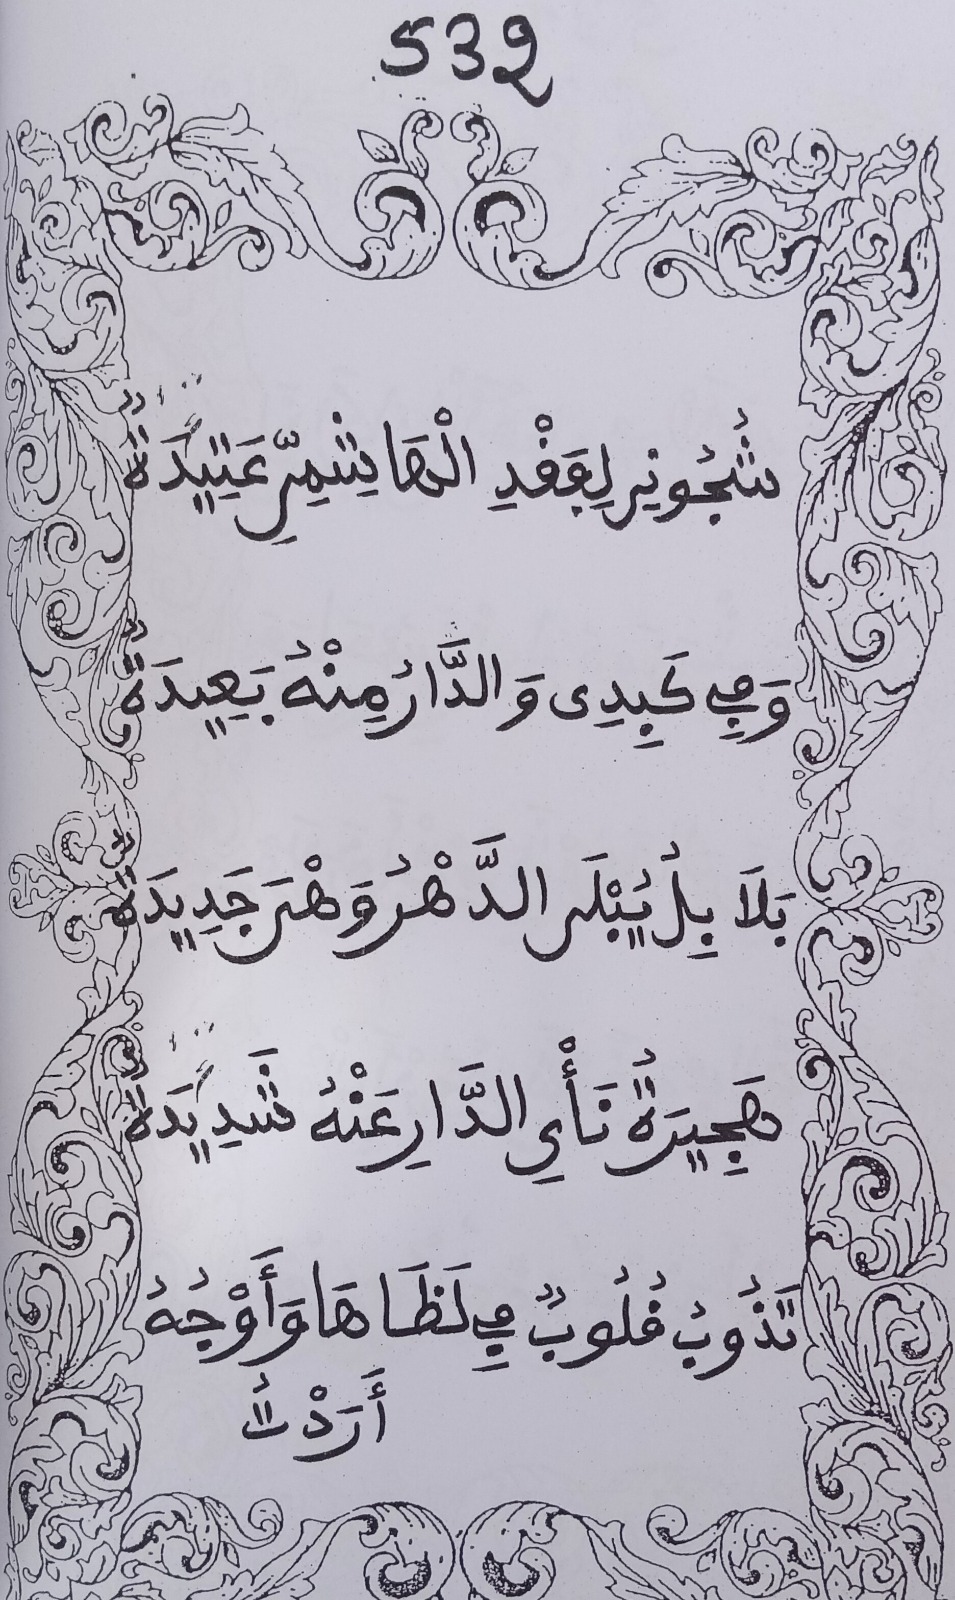 532
شُجُونِي لِفَقْدِ الْهَاشِمِيِّ عَتِيدَةٌ
وَفِي كَبِدِى وَالدَّارُ مِنْهُ بَعِيدَةٌ
بَلَابِلُ يُبْلَى الدَّهْرُ وَهْىَ جَدِيدَةٌ
هَجِيرَةُ نَأْيِ الدَّارِ عَنْهُ شَدِيدَةٌ
تَذُوبُ قُلُوبٌ فِي لَظَاهَا وَأَوْجُهُ
أَرَدْتُ